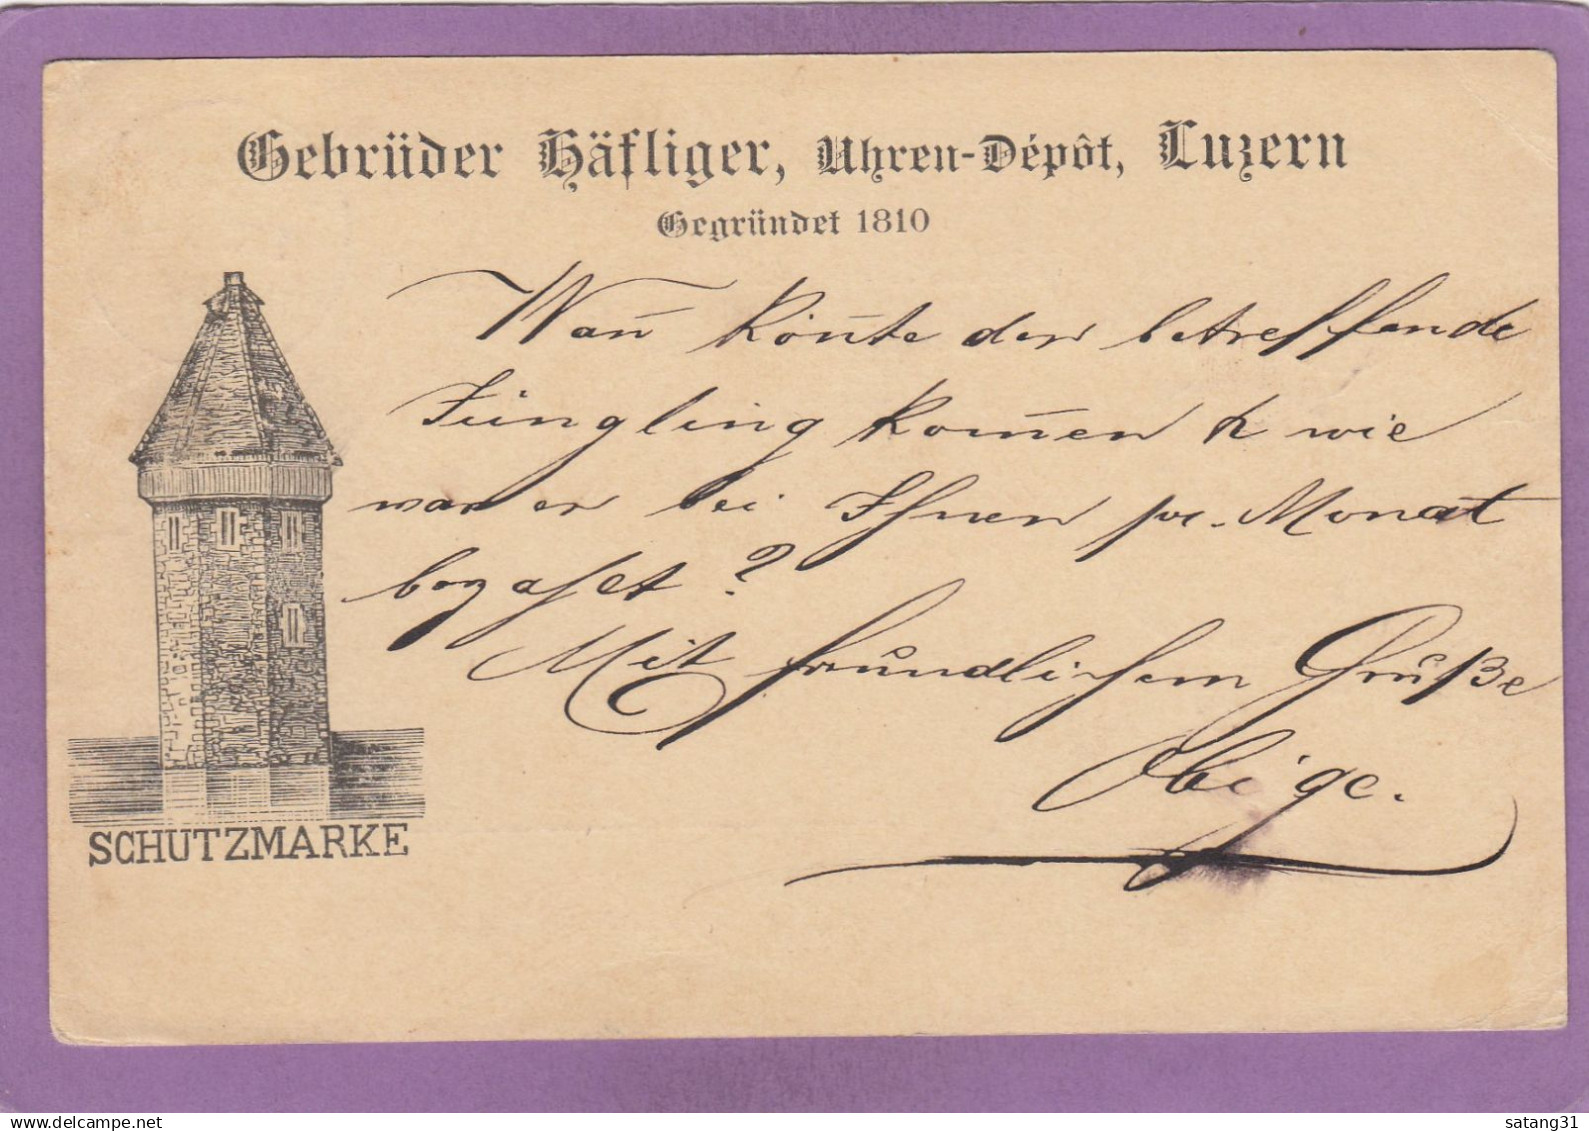 Gebrüder Häfliger, Uhren-Dépôt, Luzern
Gegründet 1810
Wan̄ kön̄te der betreffende
Jüngling kom̄en & wie
war er bei Ihnen pr. Monat
bezahlt ?
Mit freundlichem Gruße
Obige.
SCHUTZMARKE
delcampe.net
satang31